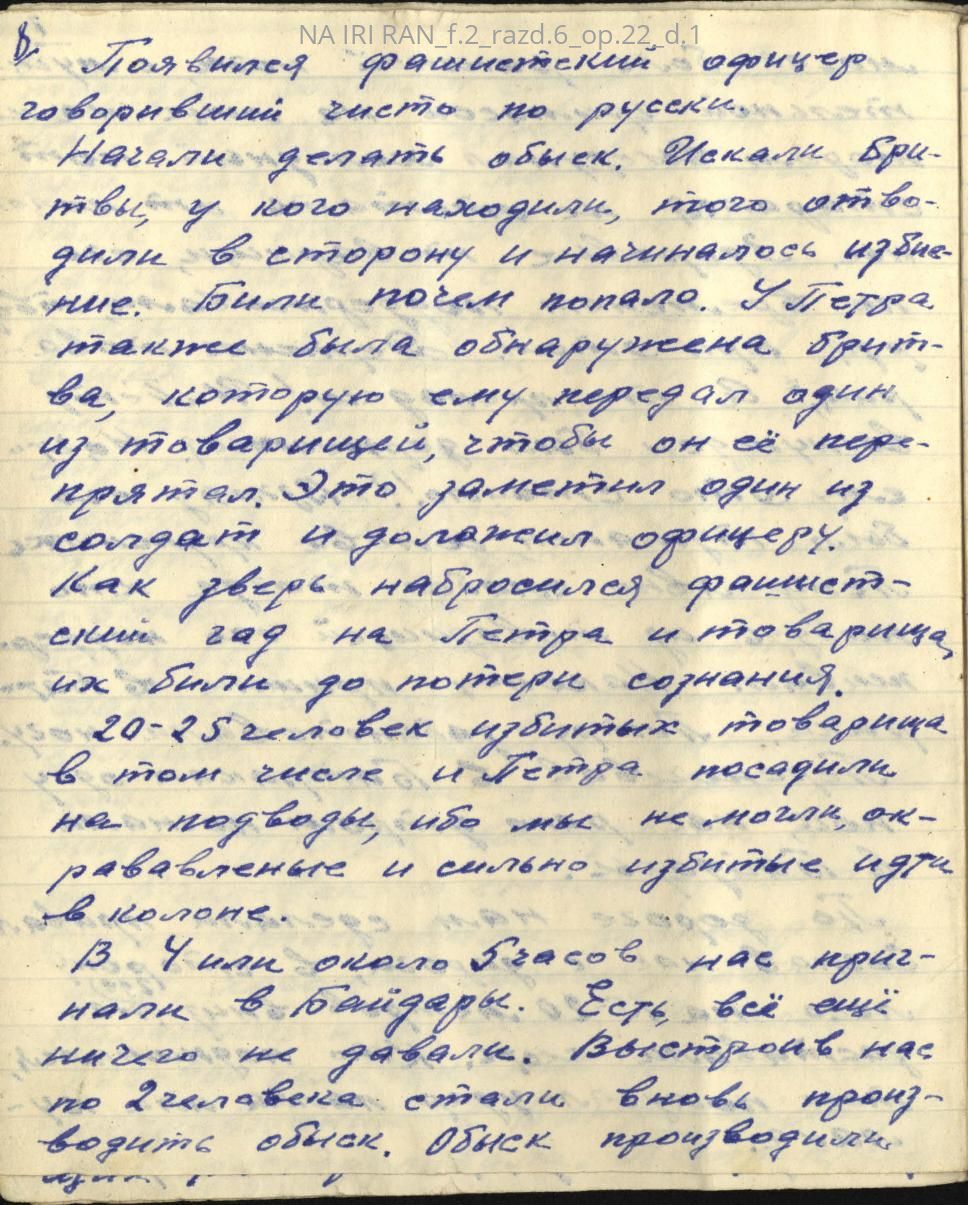 NA IRI RAN_f.2_razd.6_op.22_d.1
8
Появился фашистский офицер
говоривший чисто по русски.
Начали делать обыск. Искали бри-
твы, у кого находили, того отво-
дили в сторону и начиналось избие-
ние. Били почем попало. У Петра
также была обнаружена брит-
ва, которую ему передал один
из товарищей, чтобы он её пере-
прятал. Это заметил один из
солдат и доложил офицеру.
Как зверь набросился фашист-
ский гад на Петра и товарища,
их били до потери сознания.
20-25 человек избитых товарища
в том числе и Петра посадили
на подводы, ибо мы не могли, ок-
рававленые и сильно избитые идти
в колоне.
В 4 или около 5 часов нас приг-
нали в Байдары. Есть, всё ещё
ничего не давали. Выстроив нас
по 2 человека стали вновь произ-
водить обыск. Обыск производили